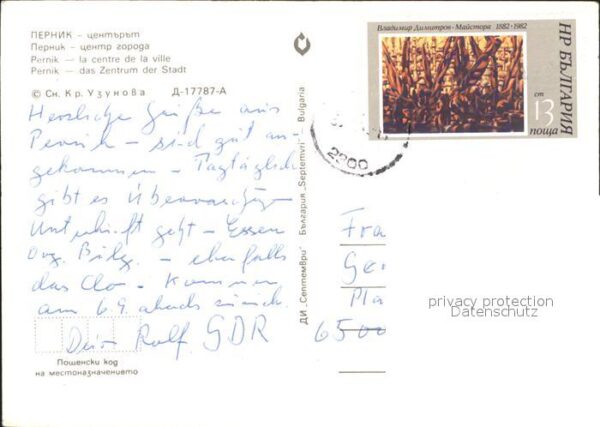 ПЕРНИК – центърът
Перник – центр города
Pernik – la centre de la ville
Pernik – das Zentrum der Stadt
© Сн. Кр. Узунова Д-17787-А
Herzliche Grüße aus
Pernik – sind gut an-
gekommen – Tagtäglich
gibt es Überraschung
Unterkunft geht – Essen
– ebenfalls
das Clo – Kommen
am 6.9. abends zurück.
Dein Rolf GDR
Пощенски код
на местоназначението
ДИ „Септември" България „Septemvri" Bulgaria
Владимир Димитров-Майстора 1882-1982
НР БЪЛГАРИЯ
ст
13
поща
2300
Fra
Ger
Pla
6500
privacy protection
Datenschutz